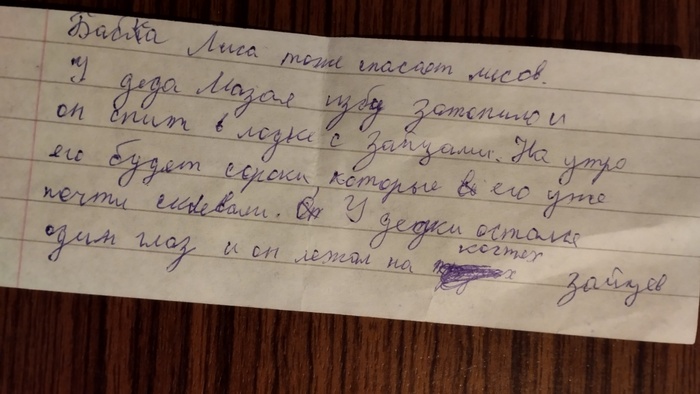 Бабка Лиса тоже спасает лисов.
У деда Мазая избу затопило и
он спит в лодке с зайцами. На утро
его будят сороки, которые его уже
почти склевали. У дедки остался
один глаз и он лежал на когтях зайцев